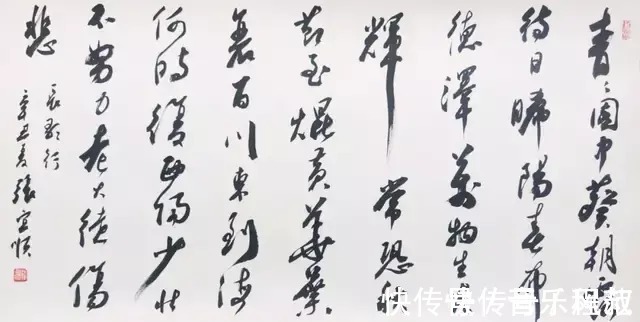 青々園中葵朝露
待日晞陽春布
德澤萬物生光
輝常恐秋
節至焜黃華葉
衰百川東到海
何時復西歸少壯
不努力老大徒傷
悲
長歌行
辛丑夏張宣順
快传号